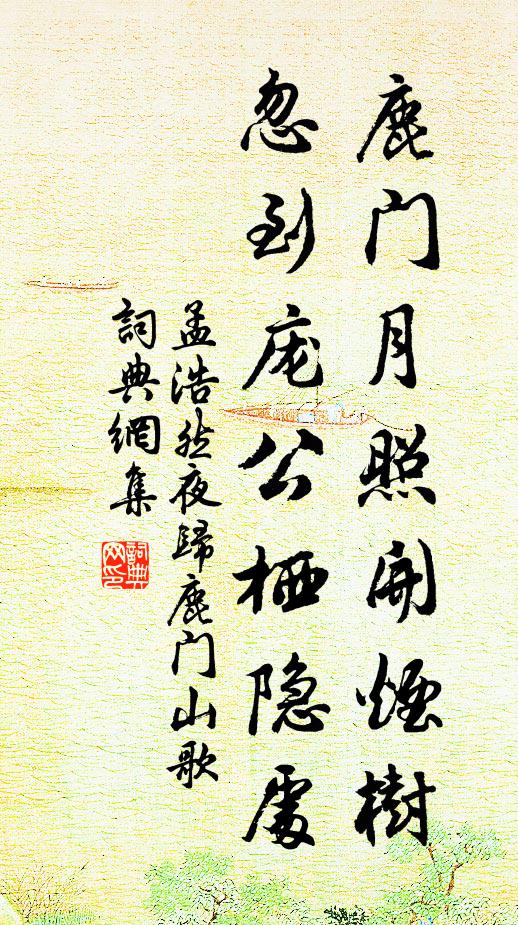 鹿门月照開煙樹
忽到庞公栖隐處
孟浩然夜歸鹿门山歌
詞典網集
詞典网印